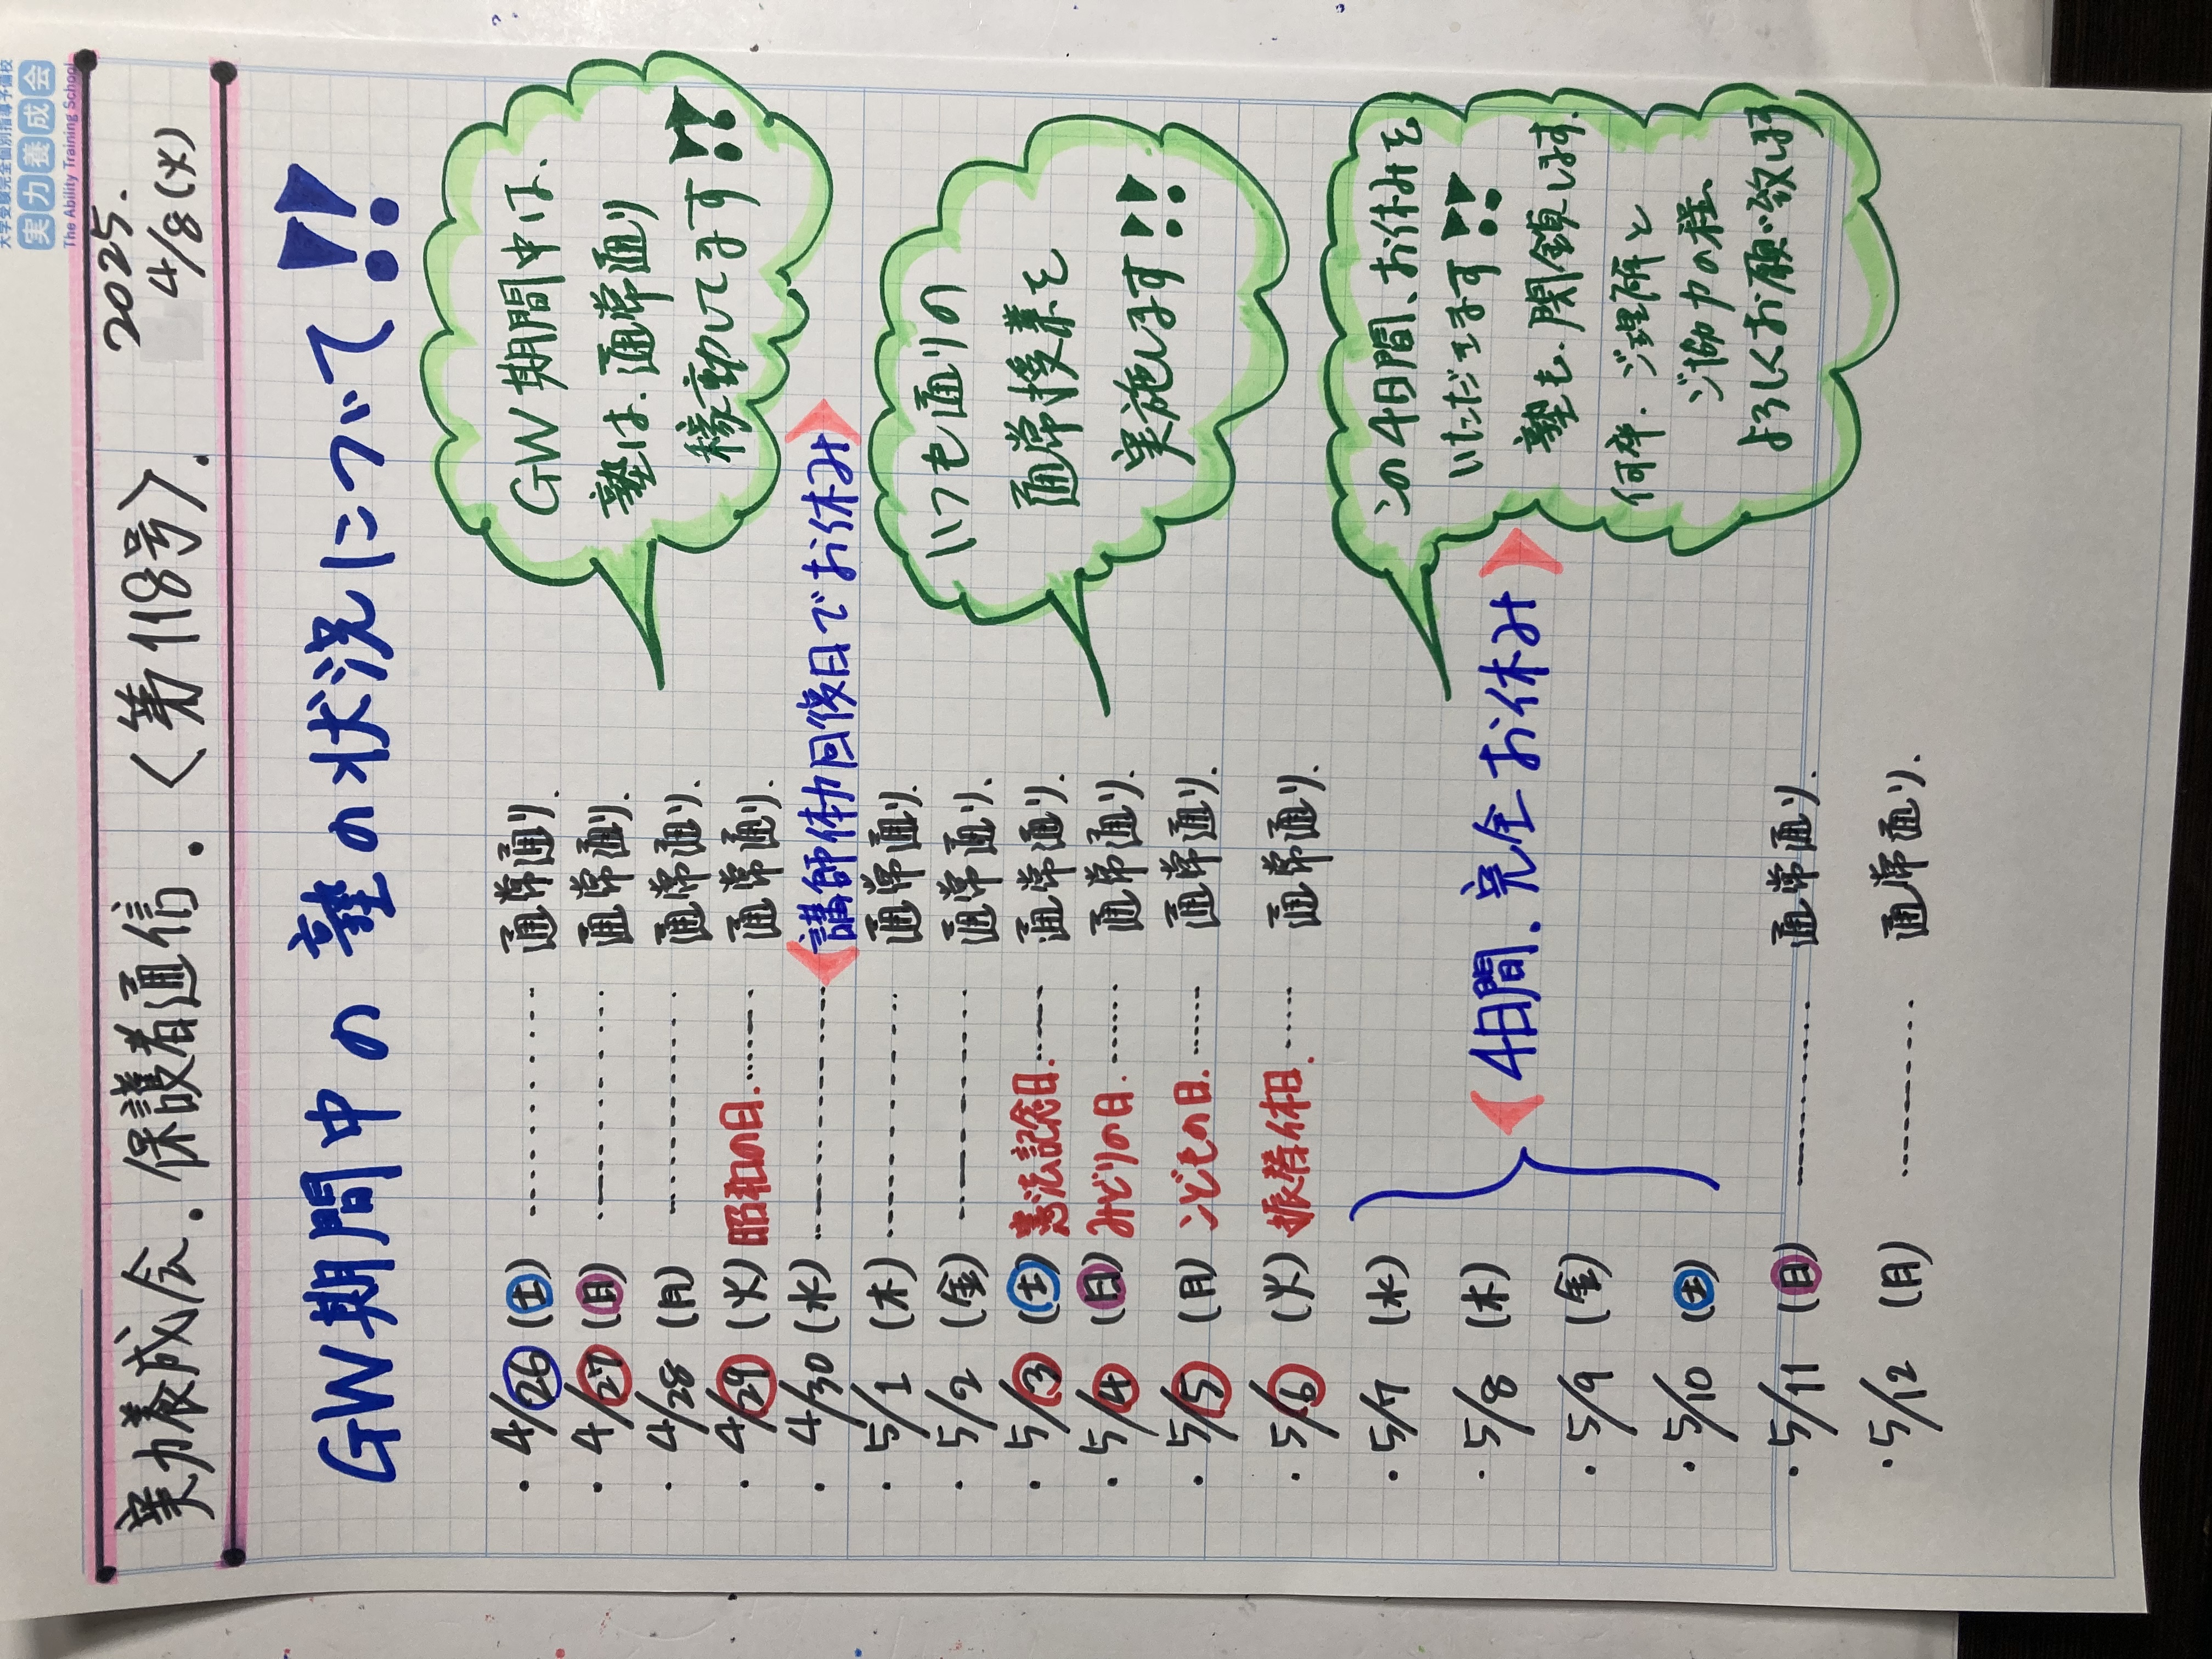 大学受験完全個別指導予備校
実力養成会
The Ability Training School
実力養成会.保護者通信.〈第118号〉.
2025.
4/8(火)
GW期間中の塾の状況について!!
・4/26(土)…………通常通り.
・4/27(日)…………通常通り.
・4/28(月)…………通常通り.
・4/29(火)昭和の日.……通常通り.
・4/30(水)…………講師体力回復日でお休み
・5/1(木)…………通常通り.
・5/2(金)…………通常通り.
・5/3(土)憲法記念日.……通常通り.
・5/4(日)みどりの日.……通常通り.
・5/5(月)こどもの日.……通常通り.
・5/6(火)振替休日.……通常通り.
・5/7(水)
・5/8(木)
・5/9(金)
・5/10(土)
4日間.完全お休み
・5/11(日)…………通常通り.
・5/12(月)…………通常通り.
GW期間中は、
塾は、通常通り
稼動してます!!
いつも通りの
通常授業を
実施します!!
この4日間、お休みを
いただきます!!
塾も、閉鎖します.
何卒.ご理解と
ご協力の程、
よろしくお願い致します